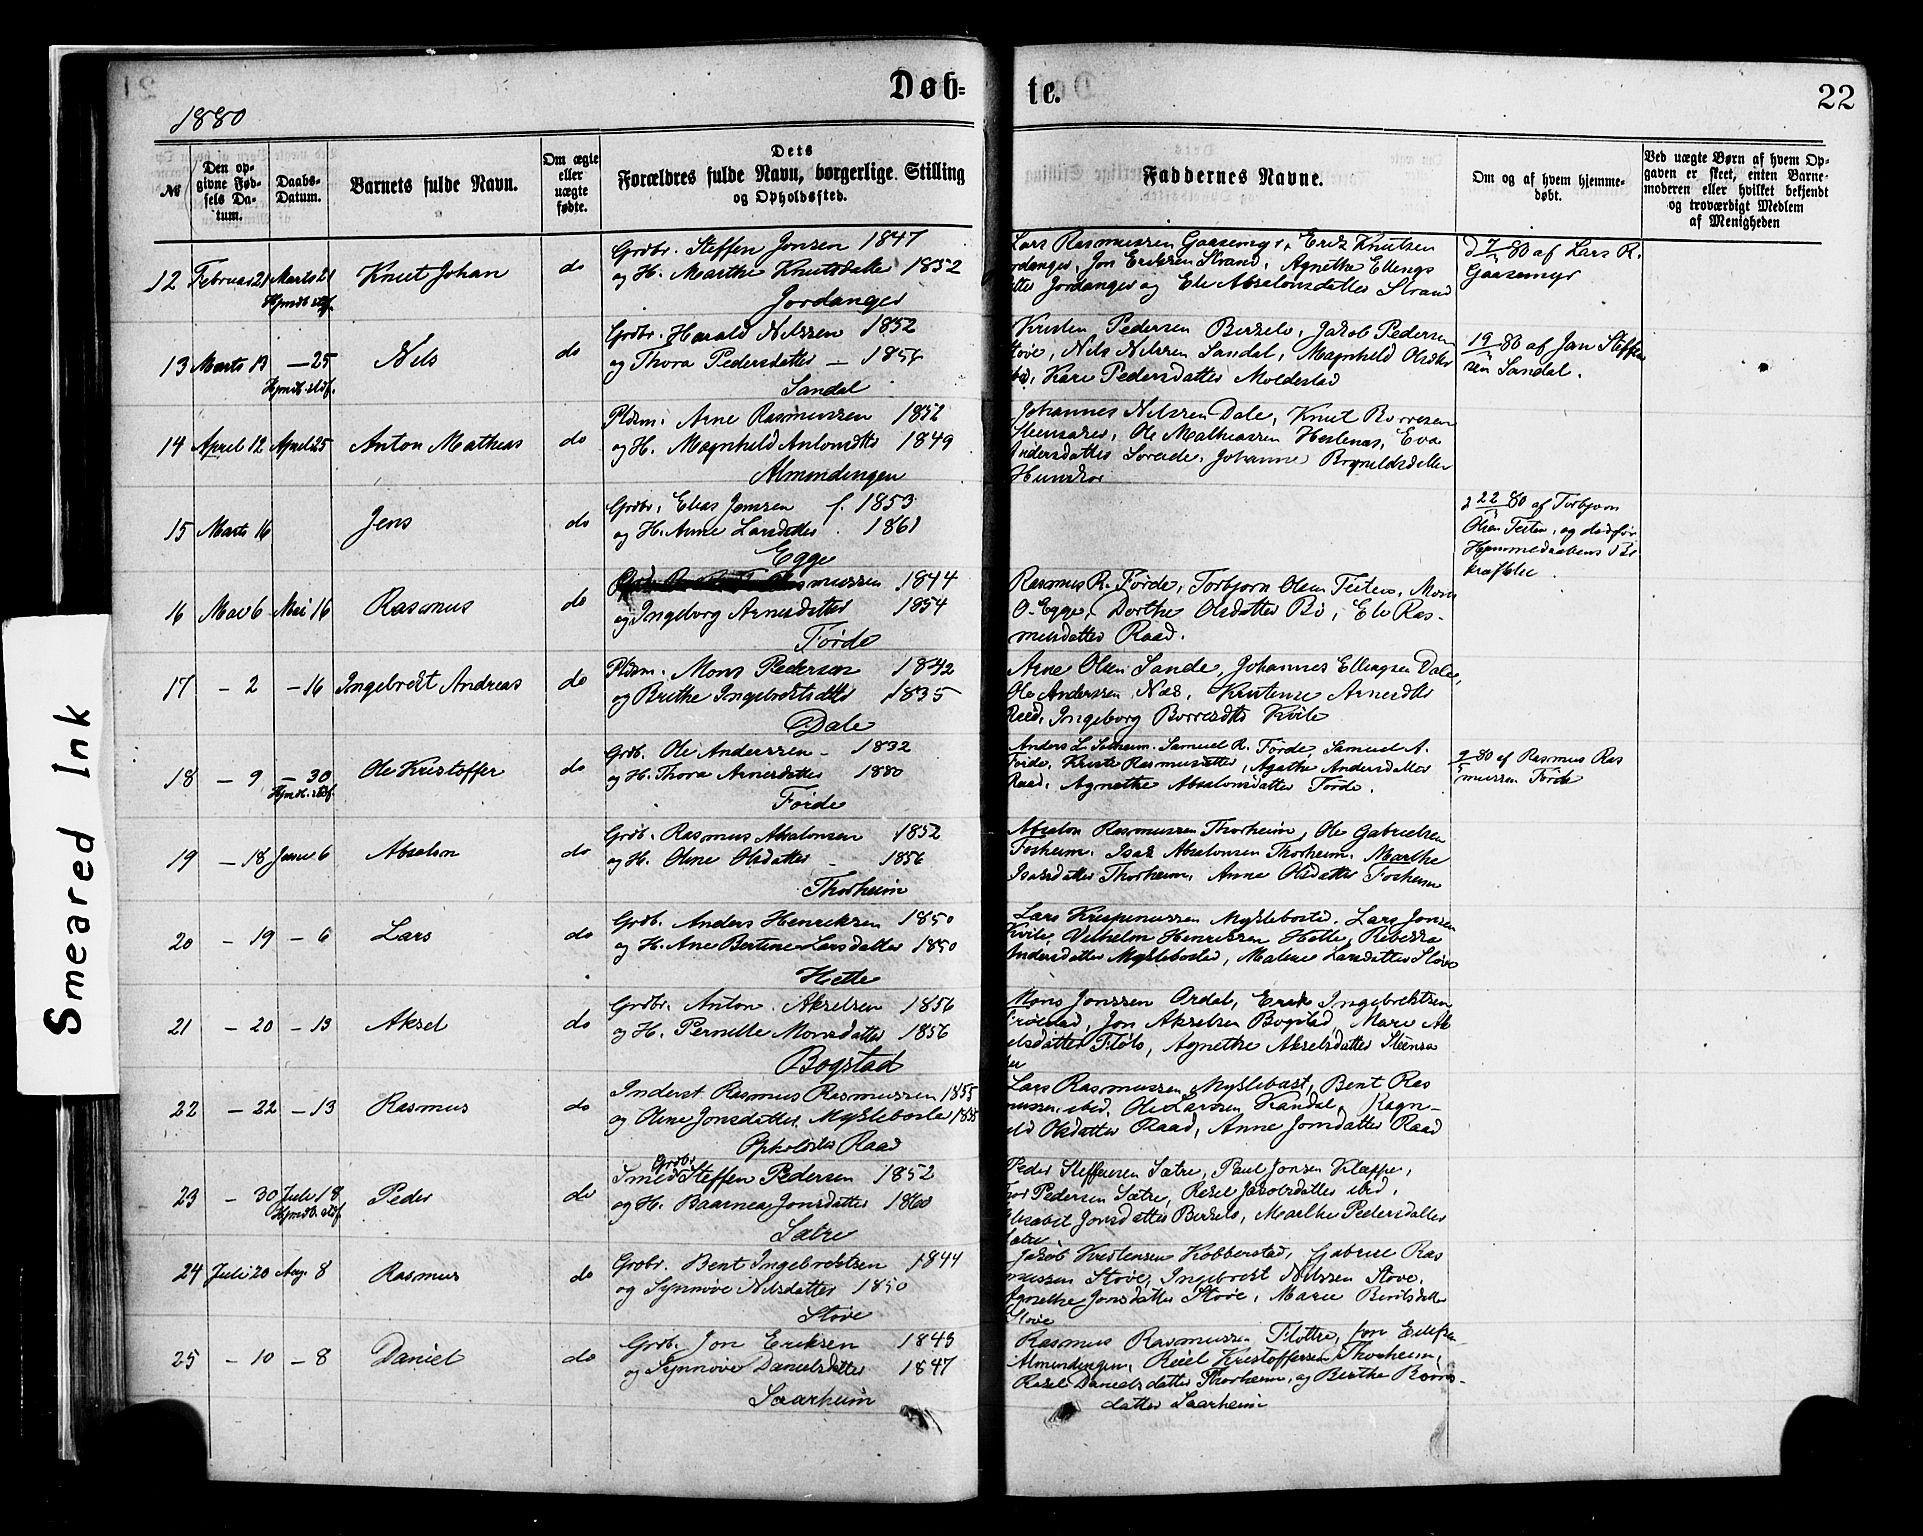 Døb=
te.
22
1880
№
Den op-
givne Fød-
sels Da-
tum.
Daabs-
Datum.
Barnets fulde Navn.
Om ægte
eller
uægte
fødte.
Dets
Forældres fulde Navn, borgerlige Stilling
og Opholdssted.
Faddernes Navne.
Om og af hvem hjemme-
døbt.
Ved uægte Børn af hvem Op-
gaven er skeet, enten Barne-
moderen eller hvilket bekjendt
og troværdigt Medlem
af Menigheden
12 Februar 21 Marts 21 Knut Johan do
Hjmdb. stdf.
Grdbr. Steffen Jonsen 1847
og H. Marthe Knutsdatter 1852
Jordanger
Lars Rasmussen Gaasemyr, Erik Knutsen
Jon Eriksen Strand, Agnethe Ellings
Jordanger og Ele Absalonsdatter Strand
80 af Lars R.
Gaasemyr
13 Marts 13 — 25 Nils do
Hjmdb. stdf.
Grdbr. Harald Nilssen 1852
og Thora Pedersdatter — 1856
Sandal
Kristen Pedersen Berkelo, Jakob Pedersen
Støve, Nils Nilssen Sandal, Magnhild Olsdtr
Kari Pedersdatter Moldestad
19 80 af Jan Steffen
sen Sandal.
14 April 12 April 25 Anton Mathias do
Pldsm. Arne Rasmussen 1852
og H. Magnhild Antonsdtr 1849
Almendingen
Johannes Nilssen Dale, Knut Børresen
Ole Mathiassen Hestenæs, Eva
Andersdatter Søreide, Johanne Brynildsdatter
Hunskor
15 Marts 16 Jens do
Grdbr. Elias Jensen f. 1853
og H. Anne Larsdatter 1861
Egge
22 80 af Torbjørn
Olsen Feiten, og død før
Hjemmedaabens Be
kræftelse
16 Mai 6 Mai 16 Rasmus do
Rasmussen 1844
og Ingeborg Arnesdatter 1854
Førde
Rasmus R. Førde, Torbjørn Olsen Feiten, Mons
O. Egge, Dorthe Olsdatter Bø, Ele Ras-
musdatter Raad.
17 — 2 — 16 Ingebrekt Andreas do
Pldsm. Mons Pedersen 1842
og Brithe Ingebrektsdatter 1835
Dale
Arne Olsen Sande, Johannes Ellingsen Dale,
Ole Anderssen Næs, Kristense Arnesdtr
Reed, Ingeborg Børresdtr Kvile
18 — 9 — 30 Ole Kristoffer do
Hjmdb. stdf.
Grdb. Ole Anderssen — 1832
og H. Thora Arnesdatter 1880
Førde
Anders L. Solheim. Samuel R. Førde, Samuel A.
Førde, Kristi Rasmusdatter, Agathe Andersdatter
Raad, Agnethe Absalonsdatter Førde.
80 af Rasmus Ras
mussen Førde
19 — 18 Juni 6 Absalon do
Grdb. Rasmus Absalonsen 1852
og H. Oline Olsdatter — 1856
Thorheim
Absalon Rasmussen Thorheim, Ole Gabrielsen
Fosheim. Isak Absalonsen Thorheim. Marthe
Isaksdatter Thorheim, Anne Olsdatter Fosheim
20 — 19 — 6 Lars do
Grdb. Anders Henriksen 1850
og H. Ane Bertine Larsdatter 1850
Hetle
Lars Krispinussen Myklebostad. Lars Jonsen
Kvile, Vilhelm Henrikssen Hetle, Rebekka
Andersdatter Myklebostad, Malene Larsdatter Støve
21 — 20 — 13 Aksel do
Grdbr. Anton Akselsen 1856
og H. Pernille Monsdatter 1856
Bogstad
Mons Jonssen Ordal, Erik Ingebrektsen
Jon Akselsen Bogstad, Mari Ak
selsdatter Fløto, Agnethe Akselsdatter Steensa
22 — 22 — 13 Rasmus do
Inderst Rasmus Rasmussen 1855
og Oline Jonsdatter Myklebostad 1855
Opholdstd Raad
Lars Rasmussen Myklebost, Bent Ras
mussen ibid, Ole Larsen Kandal, Ragn-
hild Olsdatter Raad, Anne Jonsdatter Raad
23 — 30 Juli 18 Peder do
Hjmdb. stdf.
Grdbr
Smed Steffen Pedersen 1852
og H. Baarnea Jonsdatter 1860
Sætre
Peder Steffensen Sætre, Paul Jonsen Klæppe,
Pedersen Sætre, Rakel Jakobsdatter ibid,
Elisabet Jonsdatter Berkelo, Marthe Pedersdatter
Sætre
24 Juli 20 Aug. 8 Rasmus do
Grdbr. Bent Ingebrektsen 1844
og Synnøve Nilsdatter 1850
Støve
Jakob Kristensen Kobberstad, Gabriel Ras
mussen Støve, Ingebrekt Nilssen Støve.
Agnethe Jonsdatter Støve, Marie Bentsdatter
Støve
25 — 10 — 8 Daniel do
Grdb. Jon Eriksen 1843
og Synnøve Danielsdatter 1847
Saarheim
Rasmus Rasmussen Fløtre, Jon
Almendingen, Kristoffersen Thorheim,
Rakel Danielsdatter Thorheim, og Berthe
datter Saarheim
Smeared Ink